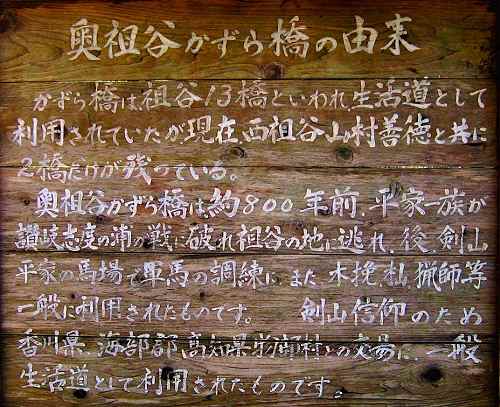 奥祖谷かずら橋の由来
かずら橋は、祖谷13橋といわれ、生活道として
利用されていたが現在西祖谷山村善徳と共に
2橋だけが残っている。
奥祖谷かずら橋は、約800年前、平家一族が
讃岐志度の浦の戦に破れ祖谷の地に逃れ、後剣山
平家の馬場で軍馬の調練に、また木挽、猟師等
一般に利用されたものです。 剣山信仰のため
香川県、海部郡、高知県物部村との交易に、一般
生活道として利用されたものです。